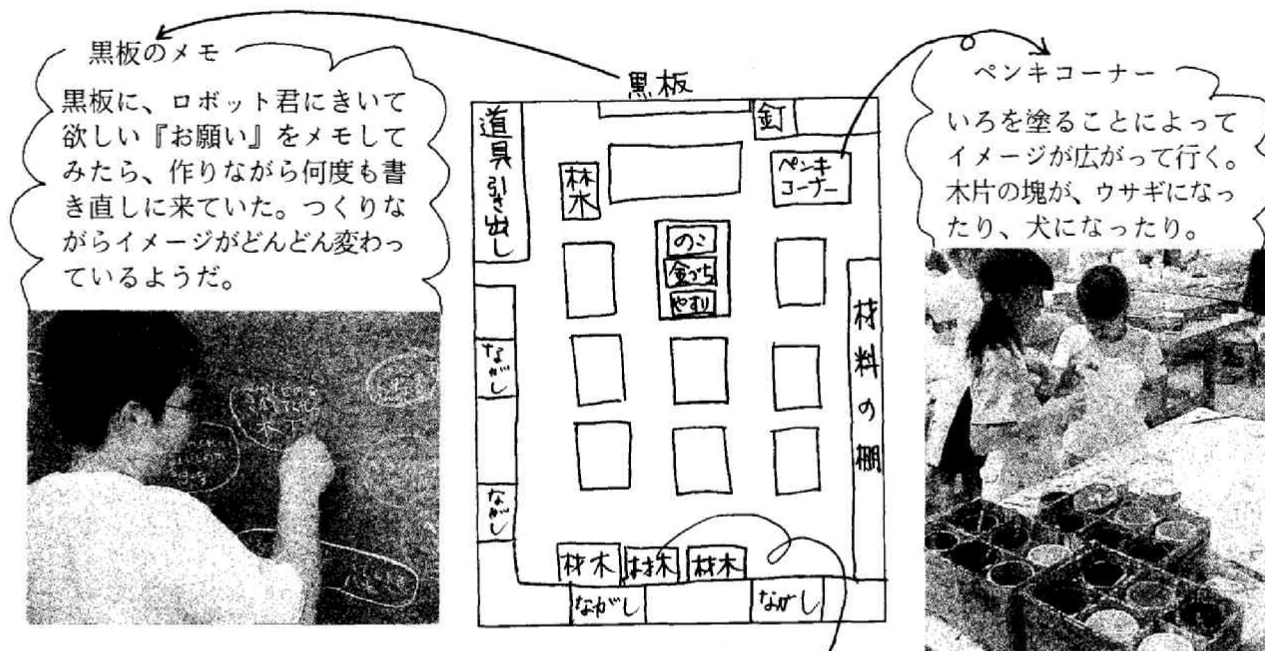 黒板のメモ
黒板に、ロボット君にきいて
欲しい『お願い』をメモして
みたら、作りながら何度も書
き直しに来ていた。つくりな
がらイメージがどんどん変わっ
ているようだ。
黒板
道具引き出し
釘
ペンキ
コーナー
材木
のこ
金づち
やすり
ながし
ながし
材料の棚
材木
材木
材木
ながし
ながし
ペンキコーナー
いろを塗ることによって
イメージが広がって行く。
木片の塊が、ウサギになっ
たり、犬になったり。